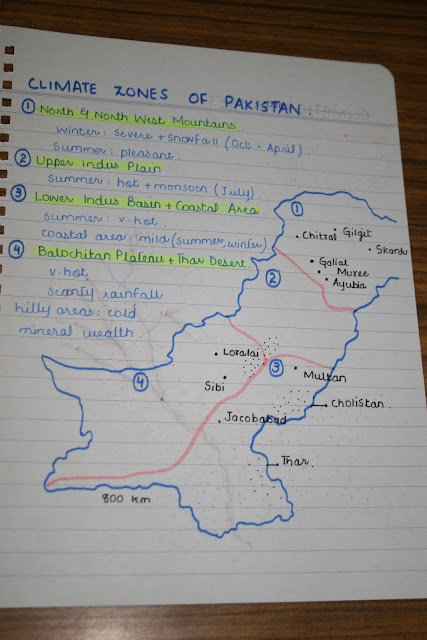 CLIMATE ZONES OF PAKISTAN.
① North & North West Mountains
winter: severe + snowfall (Oct - April)
summer: pleasant.
② Upper Indus Plain
summer: hot + monsoon (July)
③ Lower Indus Basin + Coastal Area.
summer: v. hot.
coastal area: mild (summer, winter)
④ Balochitan Plateau + Thar Desert.
v. hot
scanty rainfall
hilly areas: cold
mineral wealth.
①
Chitral
Gilgit
Skardu
Galiat
Muree
Ayubia
②
Loralai
③
Multan
④
Sibi
Cholistan
Jacobabad
Thar.
800 km